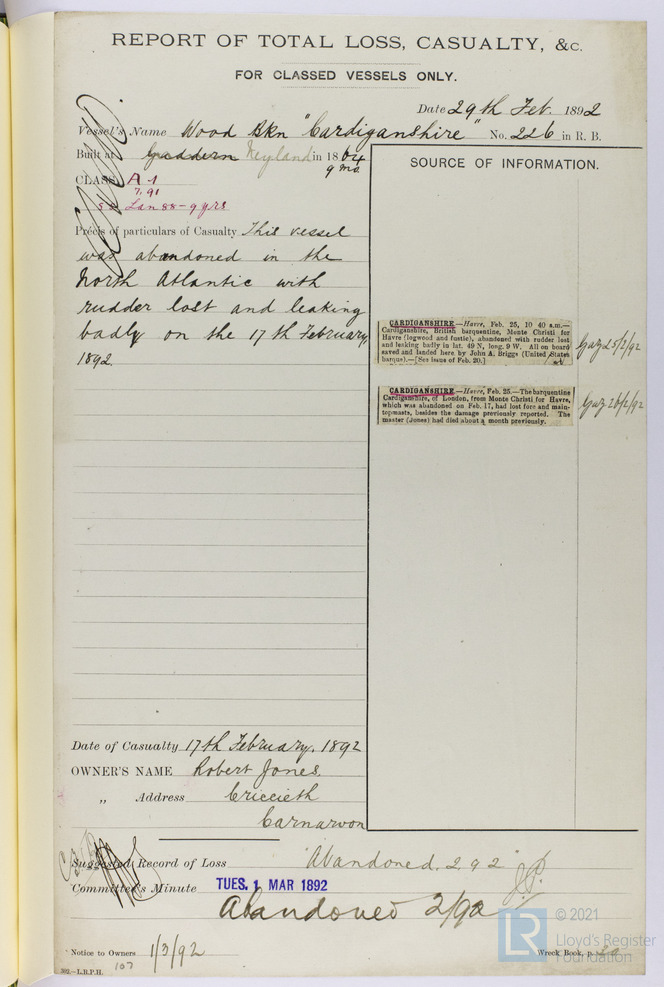 REPORT OF TOTAL LOSS, CASUALTY, &c.
FOR CLASSED VESSELS ONLY.
Date 29th Feb. 1892
Vessel's Name Wood Bkn "Cardiganshire" No. 226 in R. B.
Built at Neyland in 1864
9 mo.
CLASS A 1
7,91
Lon 88-9 yrs
Précis of particulars of Casualty This vessel
was abandoned in the
North Atlantic with
rudder lost and leaking
badly on the 17th February,
1892
SOURCE OF INFORMATION.
CARDIGANSHIRE—Havre, Feb. 25, 10 40 a.m.—
Cardiganshire, British barquentine, Monte Christi for
Havre (logwood and fustic), abandoned with rudder lost
and leaking badly in lat. 49 N, long. 9 W. All on board
saved and landed here by John A. Briggs (United States
barque).—[See issue of Feb. 20.]
Gaz 25/2/92
CARDIGANSHIRE—Havre, Feb. 25.—The barquentine
Cardiganshire, of London, from Monte Christi for Havre,
which was abandoned on Feb. 17, had lost fore and main-
topmasts, besides the damage previously reported. The
master (Jones) had died about a month previously.
Gaz 26/2/92
Date of Casualty 17th February, 1892
OWNER'S NAME Robert Jones.
„ Address Criccieth
Carnarvon
Suggested Record of Loss "Abandoned. 2,92"
Committee's Minute TUES. 1 MAR 1892
J.P.
Abandoned 2/92
Notice to Owners 1/3/92
107
Wreck Book, p. 20
302.—L.R.P.H.
LR
© 2021
Lloyd's Register
Foundation